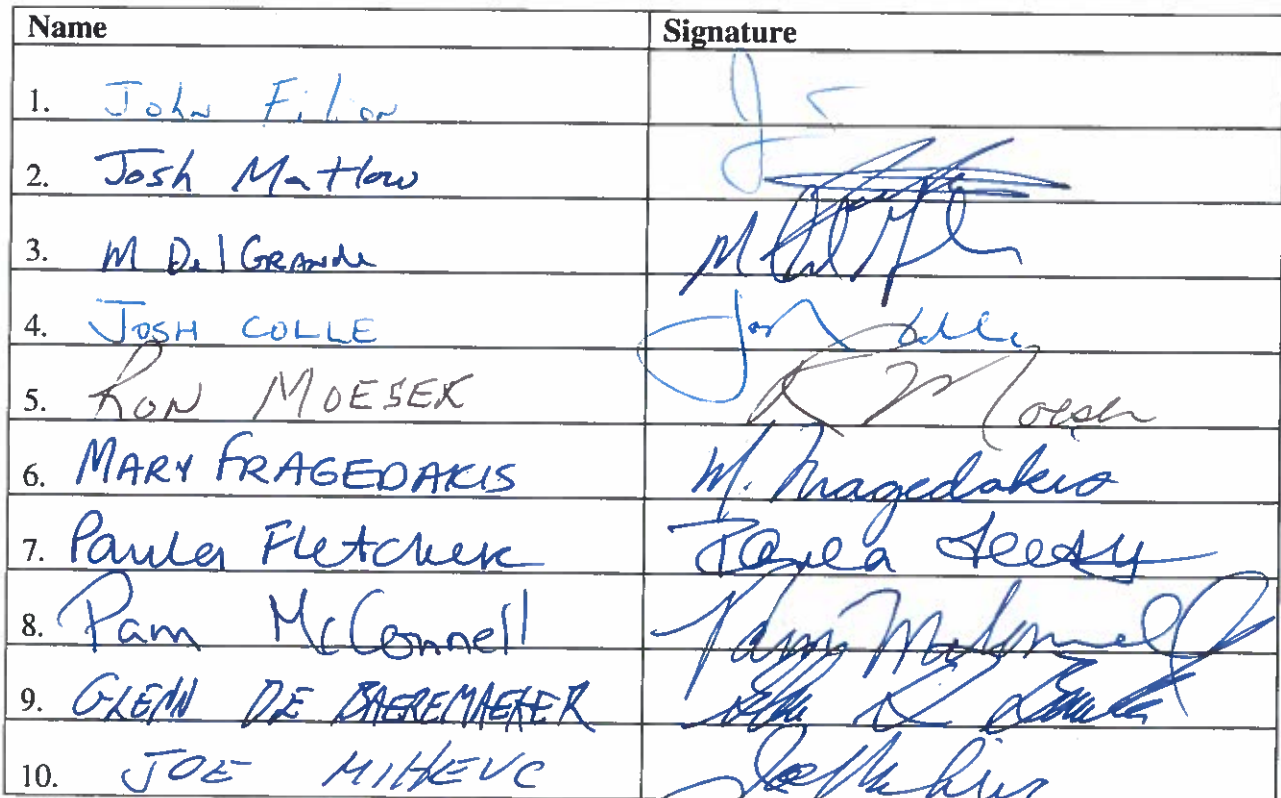 Name Signature
1. John Filion
2. Josh Matlow
3. M Del Grande M Del Grande
4. JOSH COLLE Josh Colle
5. RON MOESER R Moeser
6. MARY FRAGEDAKIS M. Fragedakis
7. Paula Fletcher Paula Fletcher
8. Pam McConnell Pam McConnell
9. GLENN DE BAEREMAEKER
10. JOE MIHEVC Joe Mihevc